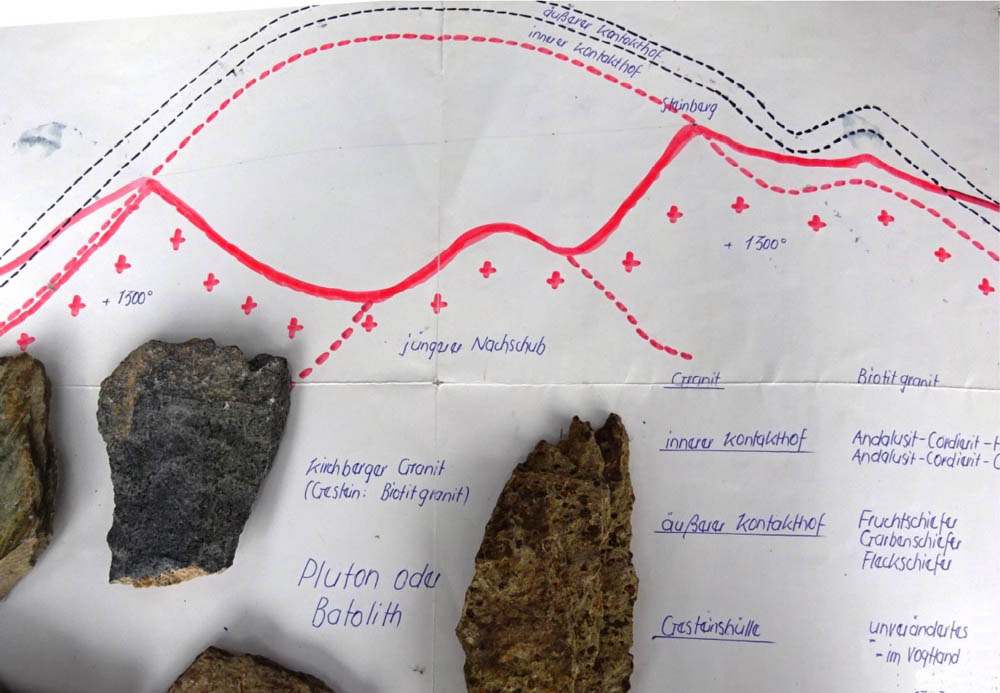 äußerer Kontakthof
innerer Kontakthof
Steinberg
+ 1300°
+ 1300°
jüngerer Nachschub
Granit
Biotitgranit
innerer Kontakthof
Andalusit-Cordierit-H
Andalusit-Cordierit-G
äußerer Kontakthof
Fruchtschiefer
Garbenschiefer
Fleckschiefer
Gesteinshülle
unverändertes
- im Vogtland
Kirchberger Granit
(Gestein: Biotitgranit)
Pluton oder
Batolith